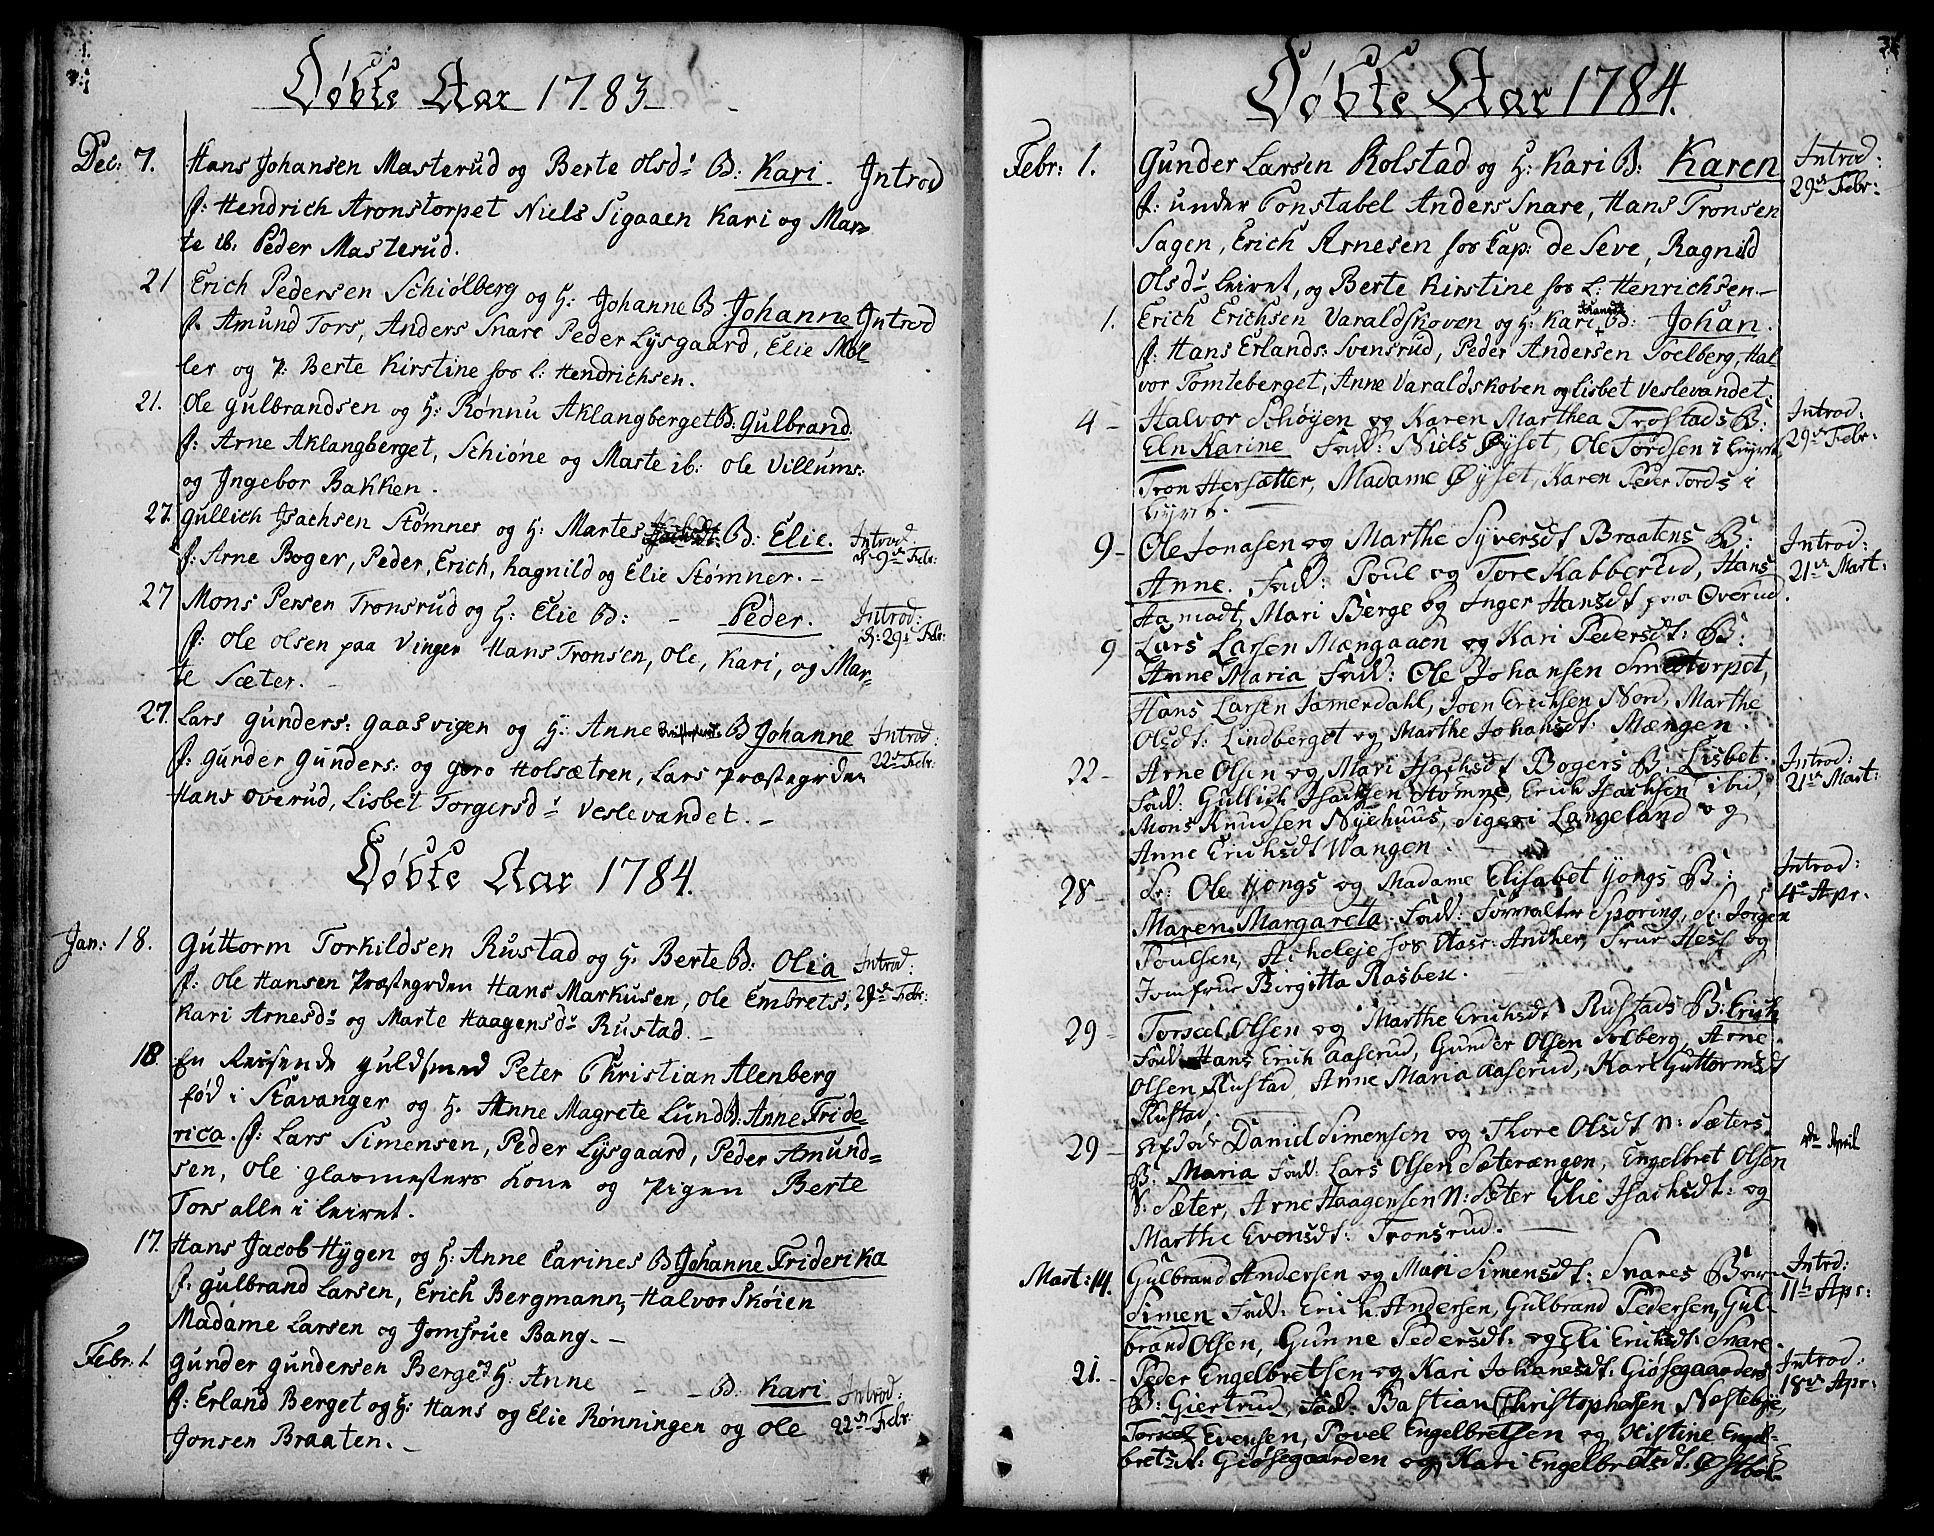 Døbte Aar 1783
Dec: 7. Hans Johansen Masterud og Berte Olsd: B: Kari. Introd
f: Hendrich Aronstorpet Niels Sigaaen Kari og Mar-
te ib: Peder Masterud.
21 Erich Pedersen Schiölberg og H: Johanne B: Johanne Introd
f. Amund Tors, Anders Snare Peder Lysgaard, Elie Møl-
ler og P: Berte Kirstine hos L: Hendrichsen.
21. Ole Gulbrandsen og H: Rønnu Aklangberget B: Gulbrand.
f: Arne Aklangberget, Schiöne og Marte ib: Ole Villums:
og Ingebor Bakken.
27. Gullich Isachsen Stømner og H: Martes B: Elie. Introd:
f: Arne Boger, Peder, Erich, hagnild og Elie Stømner. - d: 9de Febr:
27 Mons Persen Tronsrud og H: Elie B: - Peder. Introd:
f: Ole Olsen paa Vinger Hans Tronsen, Ole, Kari, og Mar- d: 29: Febr:
te Sæter. -
27. Lars Gunders: Gaasvigen og H: Anne B: Johanne Introd:
f: Gunder Gunders: og Goro Holsætren, Lars Præstegrden 22de Febr:
Hans Overud, Lisbet Torgersd: Veslevandet. -
Døbte Aar 1784.
Jan: 18. Guttorm Torkildsen Rustad og H. Berte B: Olia Introd:
f: Ole Hansen Præstegrden Hans Markusen, Ole Embrets: 29de Febr:
Kari Arnesd: og Marte Haagensd: Rustad. -
18. En Reisende Guldsmed Peter Christian Alenberg
fød i Stavanger og H. Anne Magrete Lund B: Anne Fride-
rica. f: Lars Simensen, Peder Lysgaard, Peder Amund=
sen, Ole Glarmesters Kone og Pigen Berte
Tors alle i Leiret.
17. Hans Jacob Hygen og H: Anne Carines B: Johanne Friderika
f: Gulbrand Larsen, Erich Bergmann, Halvor Skøien
Madame Larsen og Jomfrue Bang. -
Febr: 1. Gunder Gundersen Berget H: Anne - - B: Kari Introd:
f: Erland Berget og H: Hans og Elie Rønningen og Ole 22de Febr:
Jonsen Braaten. -
Døbte Aar 1784.
Febr: 1. Gunder Larsen Rolstad og H: Kari B: Karen Introd:
f: under Constabel Anders Snare, Hans Tronsen 29de Febr:
Sagen, Erich Arnesen hos Cap: de Seve, Ragnild
Olsd: Leiret, og Berte Kirstine hos L: Henrichsen. -
1. Erich Erichsen Varaldskoven og H: Kari B: Johan.
f: Hans Erlands: Svensrud, Peder Andersen Soelberg, Hal-
vor Tomteberget, Anne Varaldskoven og Lisbet Veslevandet.
4 - Halvor Schøyen og Karen Marthea Trostads B: Introd:
Eln Karine Fad: Niels Øyset, Ole Tordsen i Leyret, 29de Febr:
Tron Hersætter, Madame Øyset, Karen Peder Tords i
Leyret. -
9 - Ole Jonasen og Marthe Syversdt Braatens B: Introd:
Anne. Fad: Poul og Tore Kabberud, Hans 21de Mart:
Aamodt, Mari Berge og Inger Hansdt paa Overud.
9 Lars Larsen Mængaaen og Kari Pedersdt: B:
Anne Maria Fad: Ole Johansen Smedtorpet,
Hans Larsen Jamerdahl, Joen Erichsen Nord, Marthe
Olsdt: Lindberget og Marthe Johansdt: Mængen.
22 - Arne Olsen og Mari Isachsdt Bogers B: Lisbet. Introd:
Fad: Gullich Isachsen Stømne, Erich Isachsen ibid, 21de Mart:
Mons Knudsen Nyehuus, Sigeri Langeland og
Anne Erichsdt Wangen.
28 - Sr: Ole Hjongs og Madame Elisabet Hjongs B: Introd:
Maren Margareta. Fad: Forvalter Sporing, Sr: Jörgen 4de Apr:
Poulsen, hos Anther, Frue Hest og
Jomfrue Birgitta Rasbek.
29 - Torsed Olsen og Marthe Erichsdt Rustads B: Erich
Fad: Hans Erich Aaserud, Gunder Olsen Solberg, Arne
Olsen Rustad, Anne Maria Aaserud, Kari Guttormsdt
Rustad.
29 - Afdöde Daniel Simensen og Thore Olsdt N: Sæters
B: Maria Fad: Lars Olsen Sæterængen, Engelbret Olsen
N: Sæter, Arne Haagensen N: Sæter Elie Isachsdt: og
Marthe Evensdt: Tronsrud. -
Mart: 14. Gulbrand Andersen og Mari Simensdt: Snares Barn Introd:
Simen Fad: Erich Andersen, Gulbrand Pedersen, Gul- 11te Apr:
brand Olsen, Gunne Pedersdt: og Eli Erichsdt: Snare.
21. - Peder Engelbretsen og Kari Johanesdt: Giøsegaardens Introd:
B: Giertrud, Fad: Bastian Christophersen Næstebye, 18de Apr:
Torsed Evensen, Povel Engelbretsen og Kistine Engel-
bretsdt: Giøsegaarden og Kari Engelbretsdt: